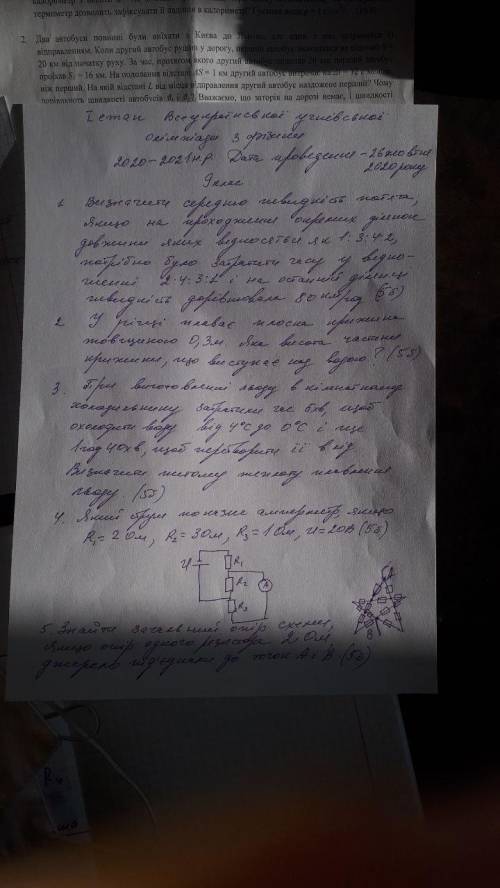 2. Два автобуси повинні були виїхати з Києва до
відправленням. Коли другий автобус рушив у дорогу, перший автобус
20 км від початку руху. За час, протягом якого другий автобус
проїхав S₁ = 16 км. На подолання відстані ΔS = 1 км другий автобус витрачає на
ніж перший. На якій відстані L від місця відправлення другий автобус наздожене перший? Чому
дорівнюють швидкості автобусів Вважаємо, що заторів на дорозі немає, і швидкості
І етап Всеукраїнської учнівської
олімпіади з фізики
2020-2021 н.р. Дата проведення - 26 жовтня
2020 року
9 клас
1. Визначити середню швидкість потяга,
якщо на проходження окремих ділянок
довжини яких відносяться як 1:3:4:2,
потрібно було затратити часу у відно-
шенні 2:4:3:1 і на останній ділянці
швидкість дорівнювала 80 км/год (5б)
2. У річці плаває плоска крижина
товщиною 0,3м. Яка висота частини
крижини, що виступає над водою? (5б)
3. При виготовленні льоду в кімнатному
холодильнику затратили час 6хв, щоб
охолодити воду від 4°С до 0°С і ще
1 год 40хв, щоб перетворити її в лід
Визначити питому теплоту плавлення
льоду. (5б)
4. Який струм покаже амперметр якщо
R₁ = 2 Ом, R₂ = 3 Ом, R₃ = 1 Ом, U = 20В (5б)
U
R₁
R₂
A
R₃
B
5. Знайти загальний опір схеми,
якщо опір одного резистора 2 Ом,
джерело під'єднати до точок А і В (5б)